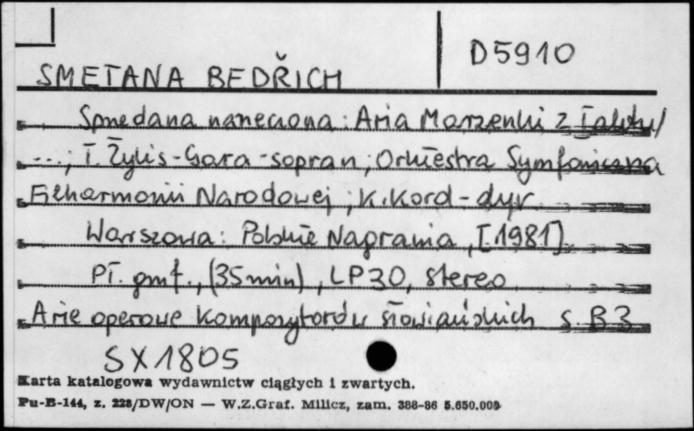 D5910
SMETANA BEDŘICH
Sprzedana narzeczona: Aria Marzenki z I aktu /
...; T. Żylis-Gara - sopran, Orkiestra Symfoniczna
Filharmonii Narodowej, K. Kord - dyr.
Warszawa: Polskie Nagrania, [1981]
Pł. gmf., (35 min), LP 30, stereo
Arie operowe kompozytorów słowiańskich s. B3
SX1805
Karta katalogowa wydawnictw ciągłych i zwartych.
Pu-B-144, z. 228/DW/ON — W.Z.Graf. Milicz, zam. 388-86 5.650.000